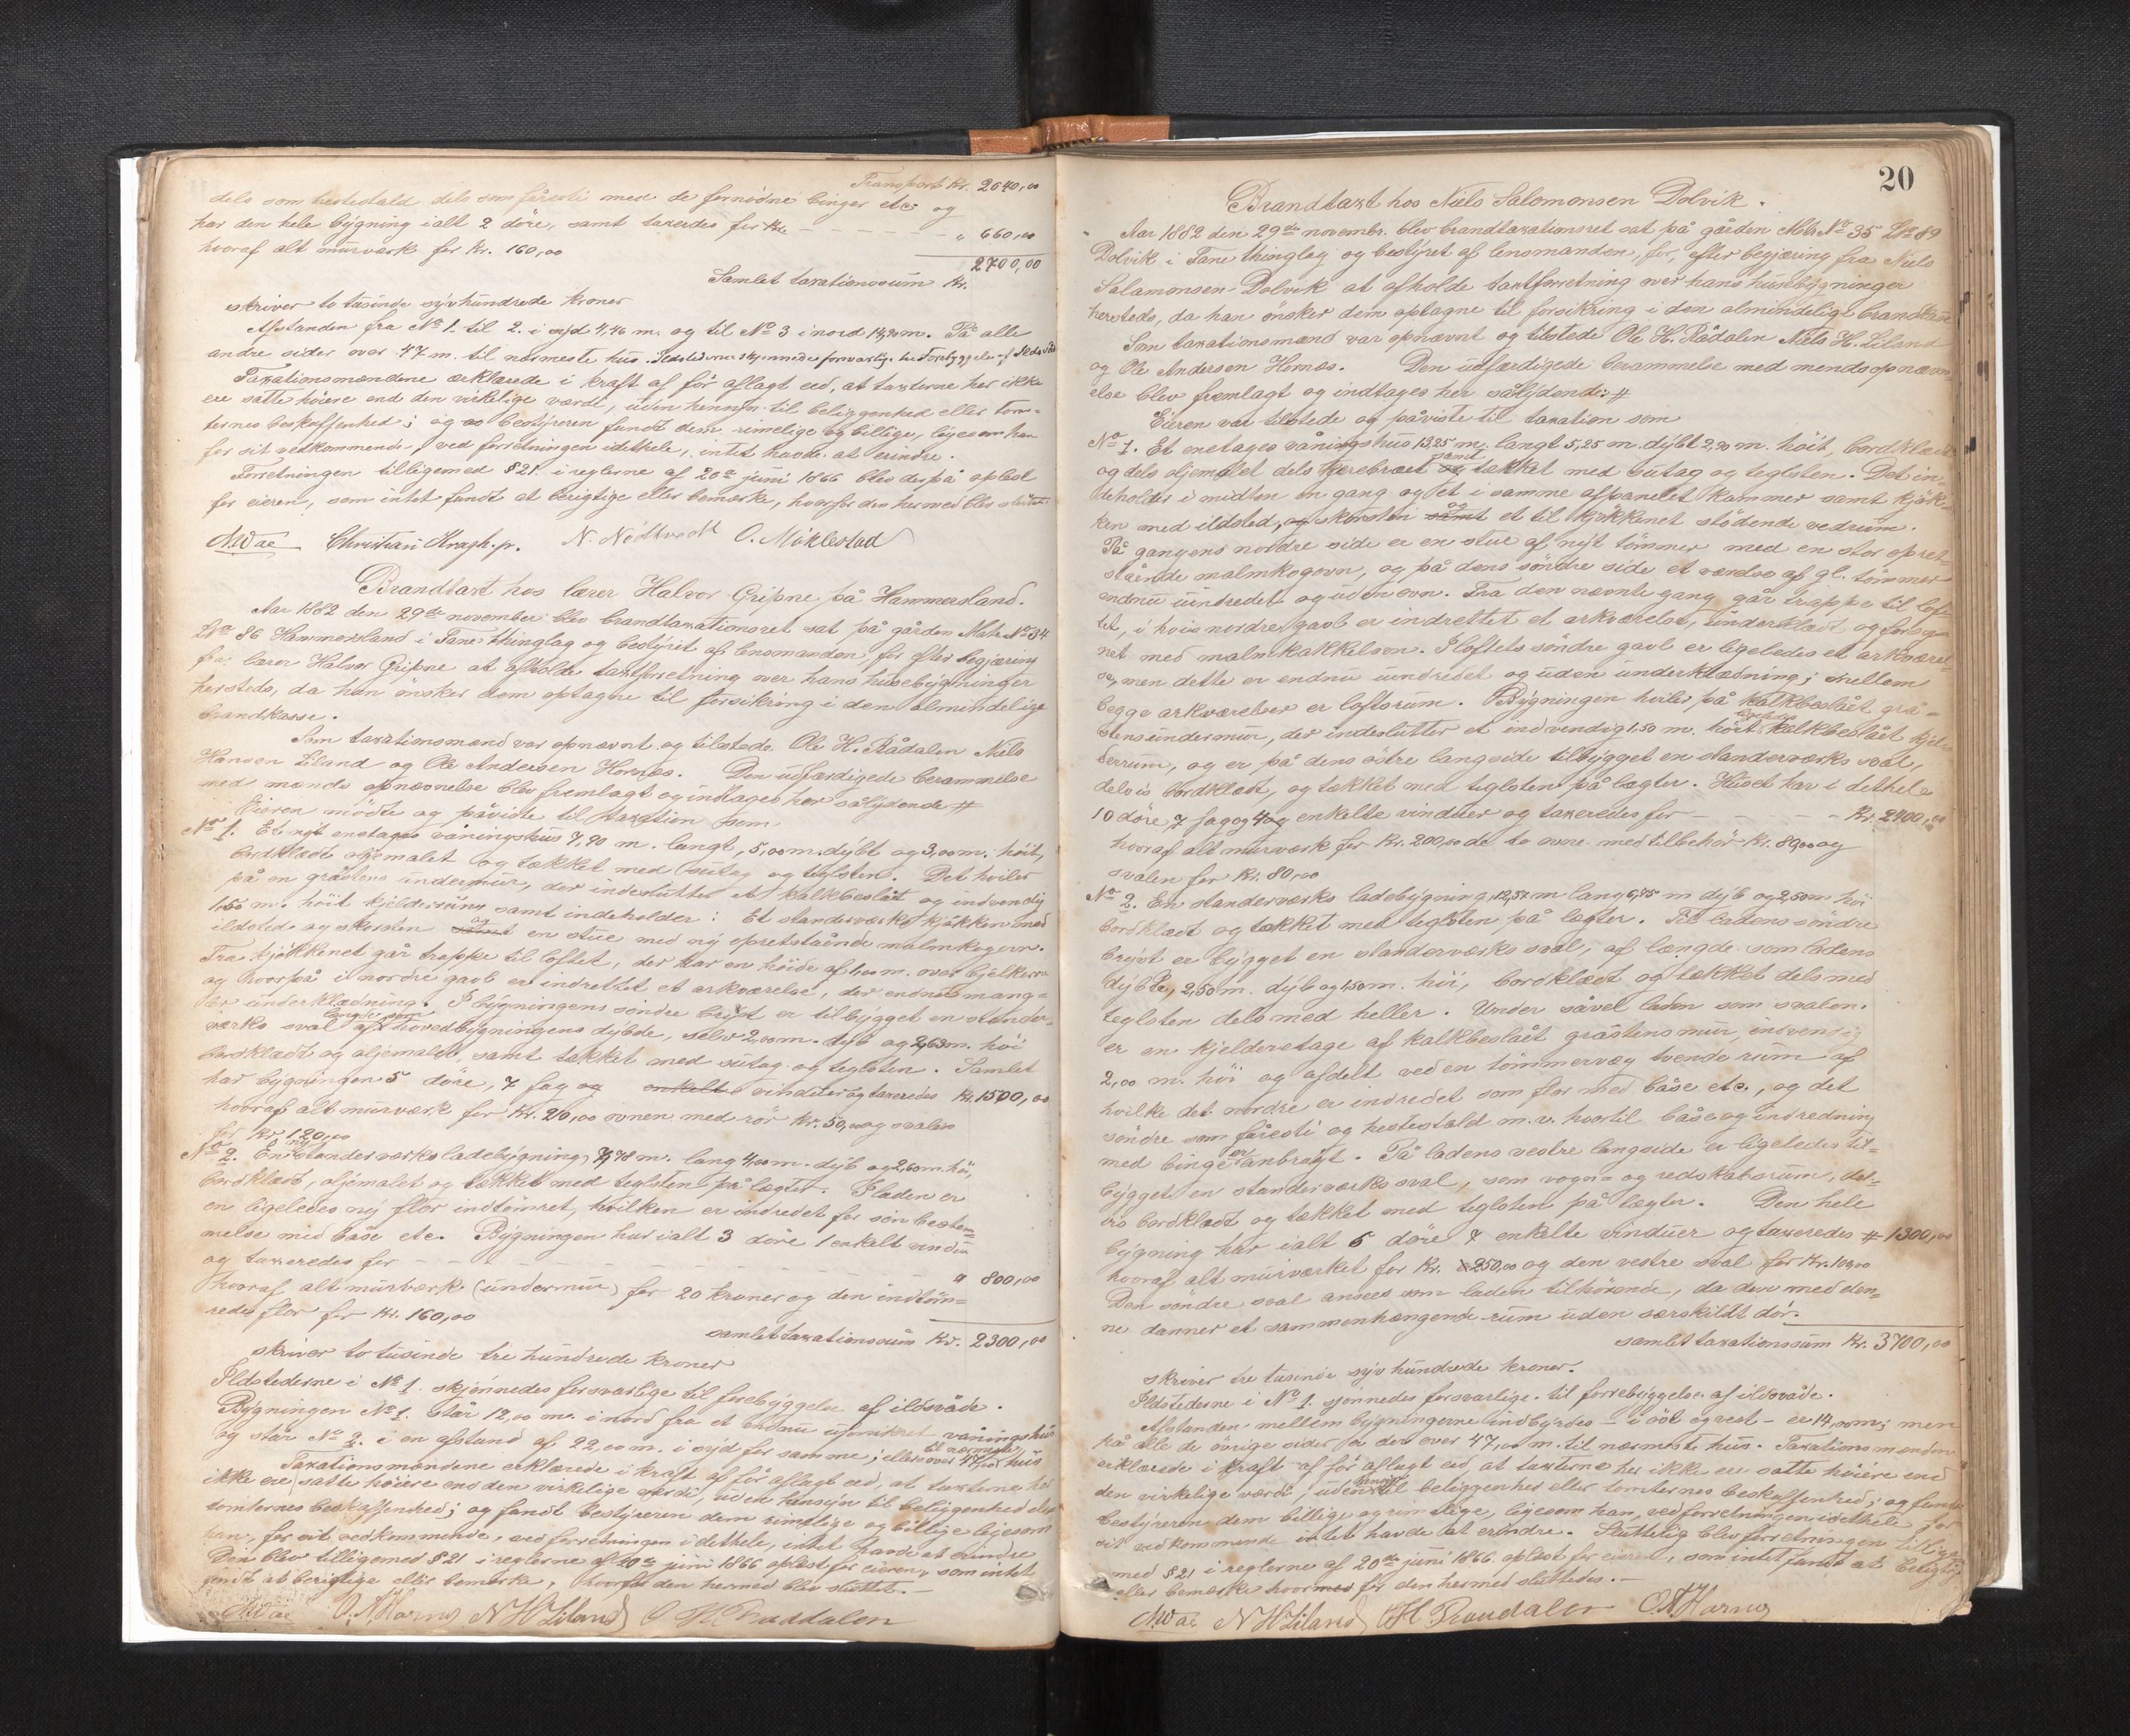 Transport Kr. 2040,00
dels som hestestald dels som fåresti med de fornødne binger etc og
har den hele bygning ialt 2 döre, samt taxerdes for Kr. " 660,00
hvoraf alt murværk for Kr. 160,00
Samlet taxationssum Kr. 2700,00
skriver to tusinde syvhundrede kroner
Afstanden fra No 1. til 2. i syd 4,46 m. og til No 3 i nord 14,90 m. På alle
andre sider over 47 m. til nærmeste hus. Ildstederne skjønnedes forsvarlige til Forebyggelse af Ildsvåde
Taxationsmændene erklærede i kraft af før aflagt eed, at taxterne her ikke
ere satte höiere end den virkelige værdi, uden hensyn til beliggenhed eller tom-
ternes beskaffenhed; og bestyreren fandt dem rimelige og billige, ligesom han
for sit vedkommende, ved forretningen idethele, intet havde at erindre.
Forretningen tilligemed § 21. i reglerne af 20de juni 1866 blev derpå oplæst
for eieren, som intet fandt at berigtige eller bemærke, hvorfor den hermed blev sluttet.
Christian Kragh. p. N. Nödtvedt O. Möklestad
Brandtaxt hos lærer Halvor Gripne på Hammersland.
Aar 1882 den 29de november blev brandtaxationsret sat på gården Matr. No 34
L No 86 Hammersland i Fane thinglag og bestyret af lensmanden, for efter begjæring
fra lærer Halvor Gripne at afholde taxtforretning over hans husebygninger
hersteds, da han önsker dem optagne til forsikring i den almindelige
brandkasse.
Som taxationsmænd var opnævnt og tilstede Ole H. Rådalen Niels
Hansen Liland og Ole Andersen Hornæs. Den udfærdigede berammelse
med mænds opnævnelse blev fremlagt og indtages her sålydende #
Eieren mödte og påviste til taxation som
No 1. Et nyt enetages våningshus 7,90 m. langt, 5,00 m. dybt og 3,00 m. höit,
bordklædt oljemalet og tækket med sutag og teglsten. Det hviler
på en gråstens undermur, der indeslutter et kalkbeslået og indvendig
1,65 m. höit kjelderrum samt indeholder: Et standerværks kjökken med
ildsted og skorsten samt og en stue med ny opretstående malmkogovn.
Fra kjökkenet går trappe til loftet, der har en höide af 1,00 m. over bjelkerne
og hvorpå i nordre gavl er indrettet et arkværelse, der endnu mang-
ler underklædning. I bygningens söndre bryst er tilbygget en stander-
værks sval af længde som hovedbygningens dybde, selv 2,00 m. dyb og 2,63 m. höi
bordklædt og oljemalet, samt tækket med sutag og teglsten. Samlet
har bygningen 5 döre, 7 fag og enkelt vinduer og taxeredes Kr. 1500,00
hvoraf alt murværk for Kr. 200,00 ovnen med rör Kr. 50,00 og svalen
for Kr. 120,00
No 2. En ny standerværks ladebygning, 7,78 m. lang 4,00 m. dyb og 2,60 m. höi,
bordklædt, oljemalet og tækket med teglsten på lægter. I laden er
en ligeledes ny flor indtömret, hvilken er indredet for sin bestem-
melse med båse etc. Bygningen har ialt 3 döre 1 enkelt vindu
og taxeredes for " 800,00
hvoraf alt murværk (undermur) for 20 kroner og den indtöm-
rede flor for Kr. 160,00
samlet taxationssum Kr. 2300,00
skriver to tusinde tre hundrede kroner
Ildstederne i No 1. skjönnedes forsvarlige til forebyggelse af ildsvåde.
Bygningen No 1. står 12,00 m. i nord fra et endnu uforsikret våningshus
og står No 2. i en afstand af 22,00 m. i syd for samme; ellers over 47,00 til nærmeste hus
Taxationsmændene erklærede i kraft af för aflagt eed, at taxterne her
ikke ere satte höiere end den virkelige værdi, uden hensyn til beliggenhed eller
tomternes beskaffenhed; og fandt bestyreren dem rimelige og billige ligesom
han, for sit vedkommende, ved forretningen i dethele, intet havde at erindre
Den blev tilligemed § 21 i reglerne af 20de juni 1866 oplæst for eieren, som intet
fandt at berigtige eller bemærke, hvorfor den hermed blev sluttet.
O. A. Hornæs N H Liland O H. Raaddalen
20
Brandtaxt hos Niels Salomonsen Dolvik.
Aar 1882 den 29de novembr. blev brandtaxationsret sat på gården Matr. No 35 L No 89
Dolvik i Fane thinglag og bestyret af lensmanden, for, efter begjæring fra Niels
Salamonsen Dolvik at afholde taxtforretning over hans husebygninger
hersteds, da han önsker dem optagne til forsikring i den almindelige brandkasse
Som taxationsmænd var opnævnt og tilstede Ole H. Rådalen Niels H. Liland
og Ole Andersen Hornæs. Den udfærdigede berammelse med mends opnævn-
else blev fremlagt og indtages her sålydende: #
Eieren var tilstede og påviste til taxation som
No 1. Et enetages våningshus 13,25 m. langt 5,25 m. dybt 2,90 m. höit, bordklædt
og dels oljemalet dels tjærebræt og samt tækket med sutag og teglsten. Det in-
deholder i midten en gang og et i samme afpanelet kammer samt kjök-
ken med ildsted, og skorsten samt og et til kjökkenet stödende vedrum.
På gangens nordre side er en stue af nyt tömmer med en stor opret-
stående malmkogovn, og på dens söndre side et værelse af gl. tömmer
endnu uindredet og uden ovn. Fra den nævnte gang går trappe til lof-
tet, i hvis nordre gavl er indrettet et arkværelse, underklædt og forsy-
net med malmkakkelovn. I loftets söndre gavl er ligeledes et arkværel-
se, men dette er endnu uindredet og uden underklædning; mellem
begge arkværelser er loftsrum. Bygningen hviler på kalkbeslået grå-
stensundermur, der indeslutter et indvendig 1,50 m. höit ligeledes kalkbeslået kjel-
derrum, og er på dens östre langside tilbygget en standerværks sval,
delvis bordklædt, og tækket med teglsten på lægter. Huset har i dethele
10 döre, 7 fag og 4 og enkelte vinduer og taxeredes for Kr. 2400,00
hvoraf alt murværk for Kr. 200,00 de to ovne med tilbehör Kr. 80,00 og
svalen for Kr. 80,00
No 2. En standerværks ladebygning, 12,57 m lang 6,75 m dyb og 2,50 m. höi
bordklædt og tækket med teglsten på lægter. Til ladens söndre
bryst er bygget en standerværks sval, af længde som ladens
dybde, 2,50 m. dyb og 1,50 m. höi, bordklædt og tækket dels med
teglsten dels med heller. Under såvel laden som svalen
er en kjelderetage af kalkbeslået gråstensmur, indvendig
2,00 m. höi og afdelt ved en tömmervæg tvende rum af
hvilke det nordre er indredet som flor med båse etc., og det
söndre som fåresti og hestestald m.v. hvortil båse og indredning
med binge er anbragt. På ladens vestre langside er ligeledes til-
bygget en standerværks sval, som vogn- og redskabsrum, del-
vis bordklædt og tækket med teglsten på lægter. Den hele
bygning har ialt 6 döre 7 enkelte vinduer og taxeredes # 1300,00
hvoraf alt murværket for Kr. 250,00 og den vestre sval for Kr. 100,00
Den söndre sval ansees som laden tilhörende, da den med den-
ne danner et sammenhængende rum uden særskildt dör.
samlet taxationssum Kr. 3700,00
skriver tre tusinde syv hundrede kroner.
Ildstederne i No 1. sjönnedes forsvarlige til forrebyggelse af ildsvåde.
Afstanden mellem bygningerne indbyrdes – i öst og vest – er 14,00 m; men
på alle de övrige sider er der over 47,00 m. til nærmeste hus. Taxationsmændene
erklærede i kraft af för aflagt eed, at taxterne her ikke ere satte höiere end
den virkelige værdi, uden hensyn til beliggenhed eller tomternes beskaffenhed; og fandt
bestyreren dem billige og rimelige, ligesom han, ved forretningen idethele for
sit vedkommende intet havde at erindre. Sluttelig blev forretningen tillige-
med § 21 i reglerne af 20de juni 1866 oplæst for eieren, som intet fandt at berigtige
eller bemærke hvormed for den hermed sluttedes.
N H Liland O H. Raaudalen O. A Hornæs